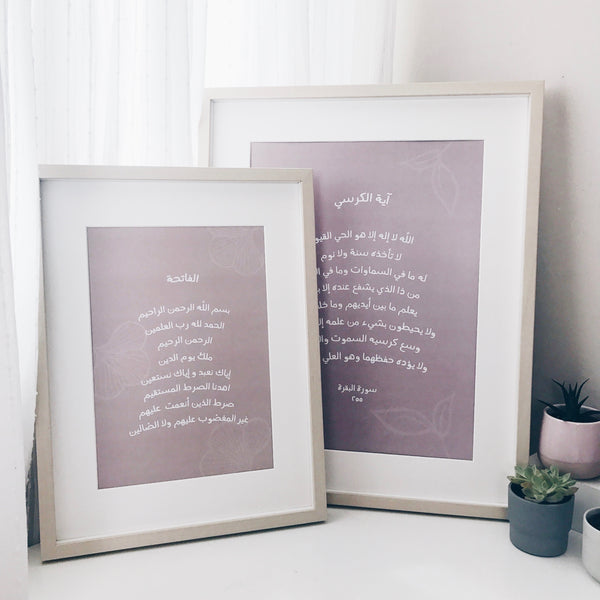 الفاتحة
بسم الله الرحمن الراحيم
الحمد لله رب العلمين
الرحمن الرحيم
ملك يوم الدين
إياك نعبد و إياك نستعين
اهدنا الصرط المستقيم
صرط الذين أنعمت عليهم
غير المغضوب عليهم ولا الضالين
آية الكرسي
الله لا إله إلا هو الحي
لا تأخذه سنة ولا نوم
له ما في السماوات وما في
من ذا الذي يشفع عنده إلا
يعلم ما بين أيديهم وما
ولا يحيطون بشيء من علمه
وسع كرسيه السموت
ولا يؤده حفظهما وهو العلي
سورة البقرة
٢٥٥